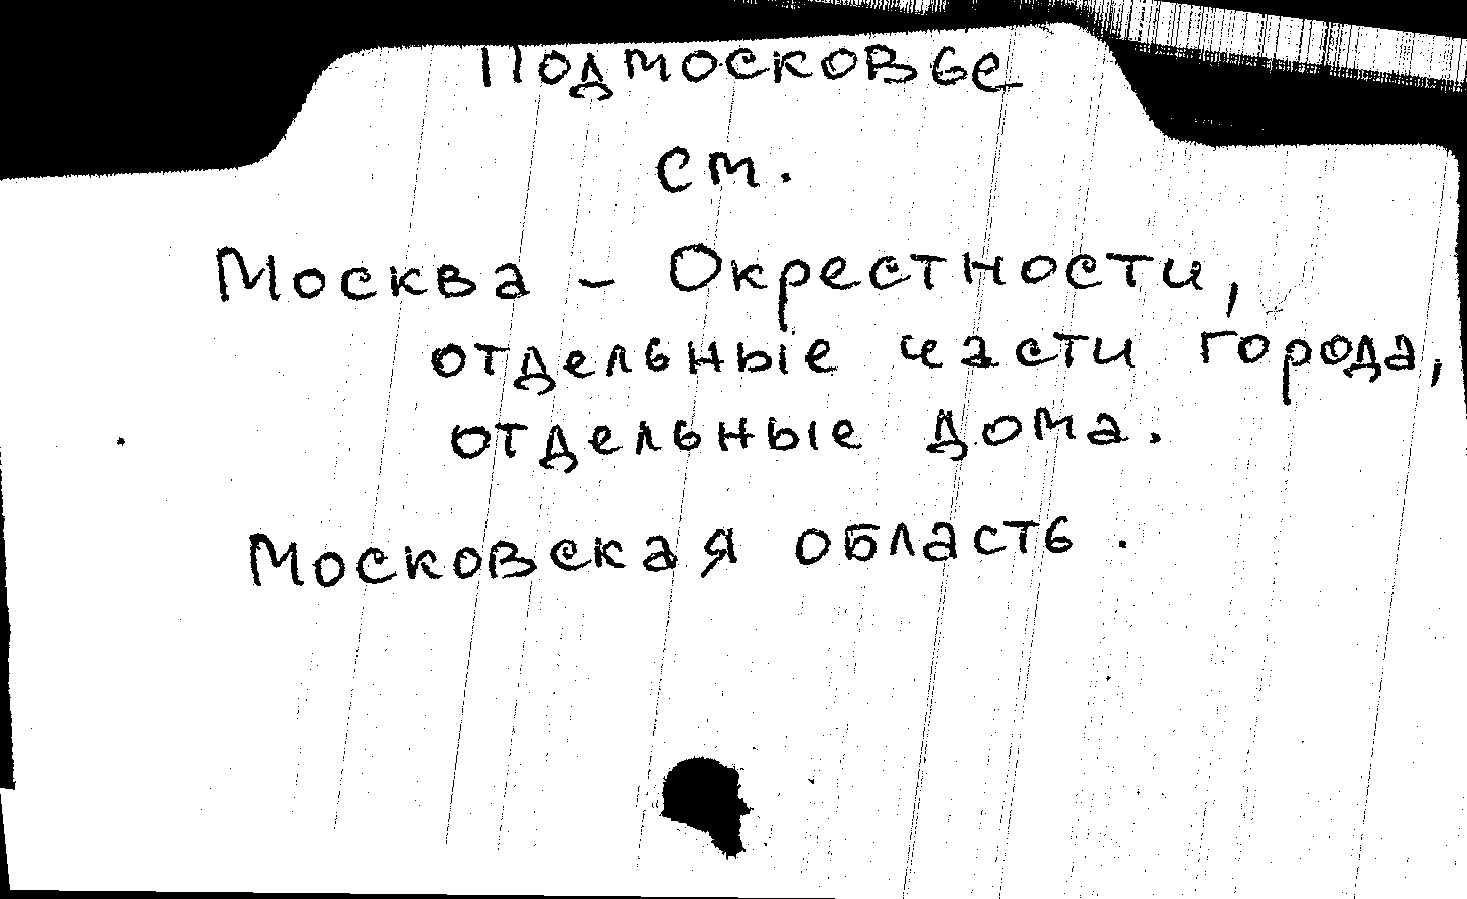 Подмосковье
см.
Москва – Окрестности,
отдельные части города,
отдельные дома.
Московская область.